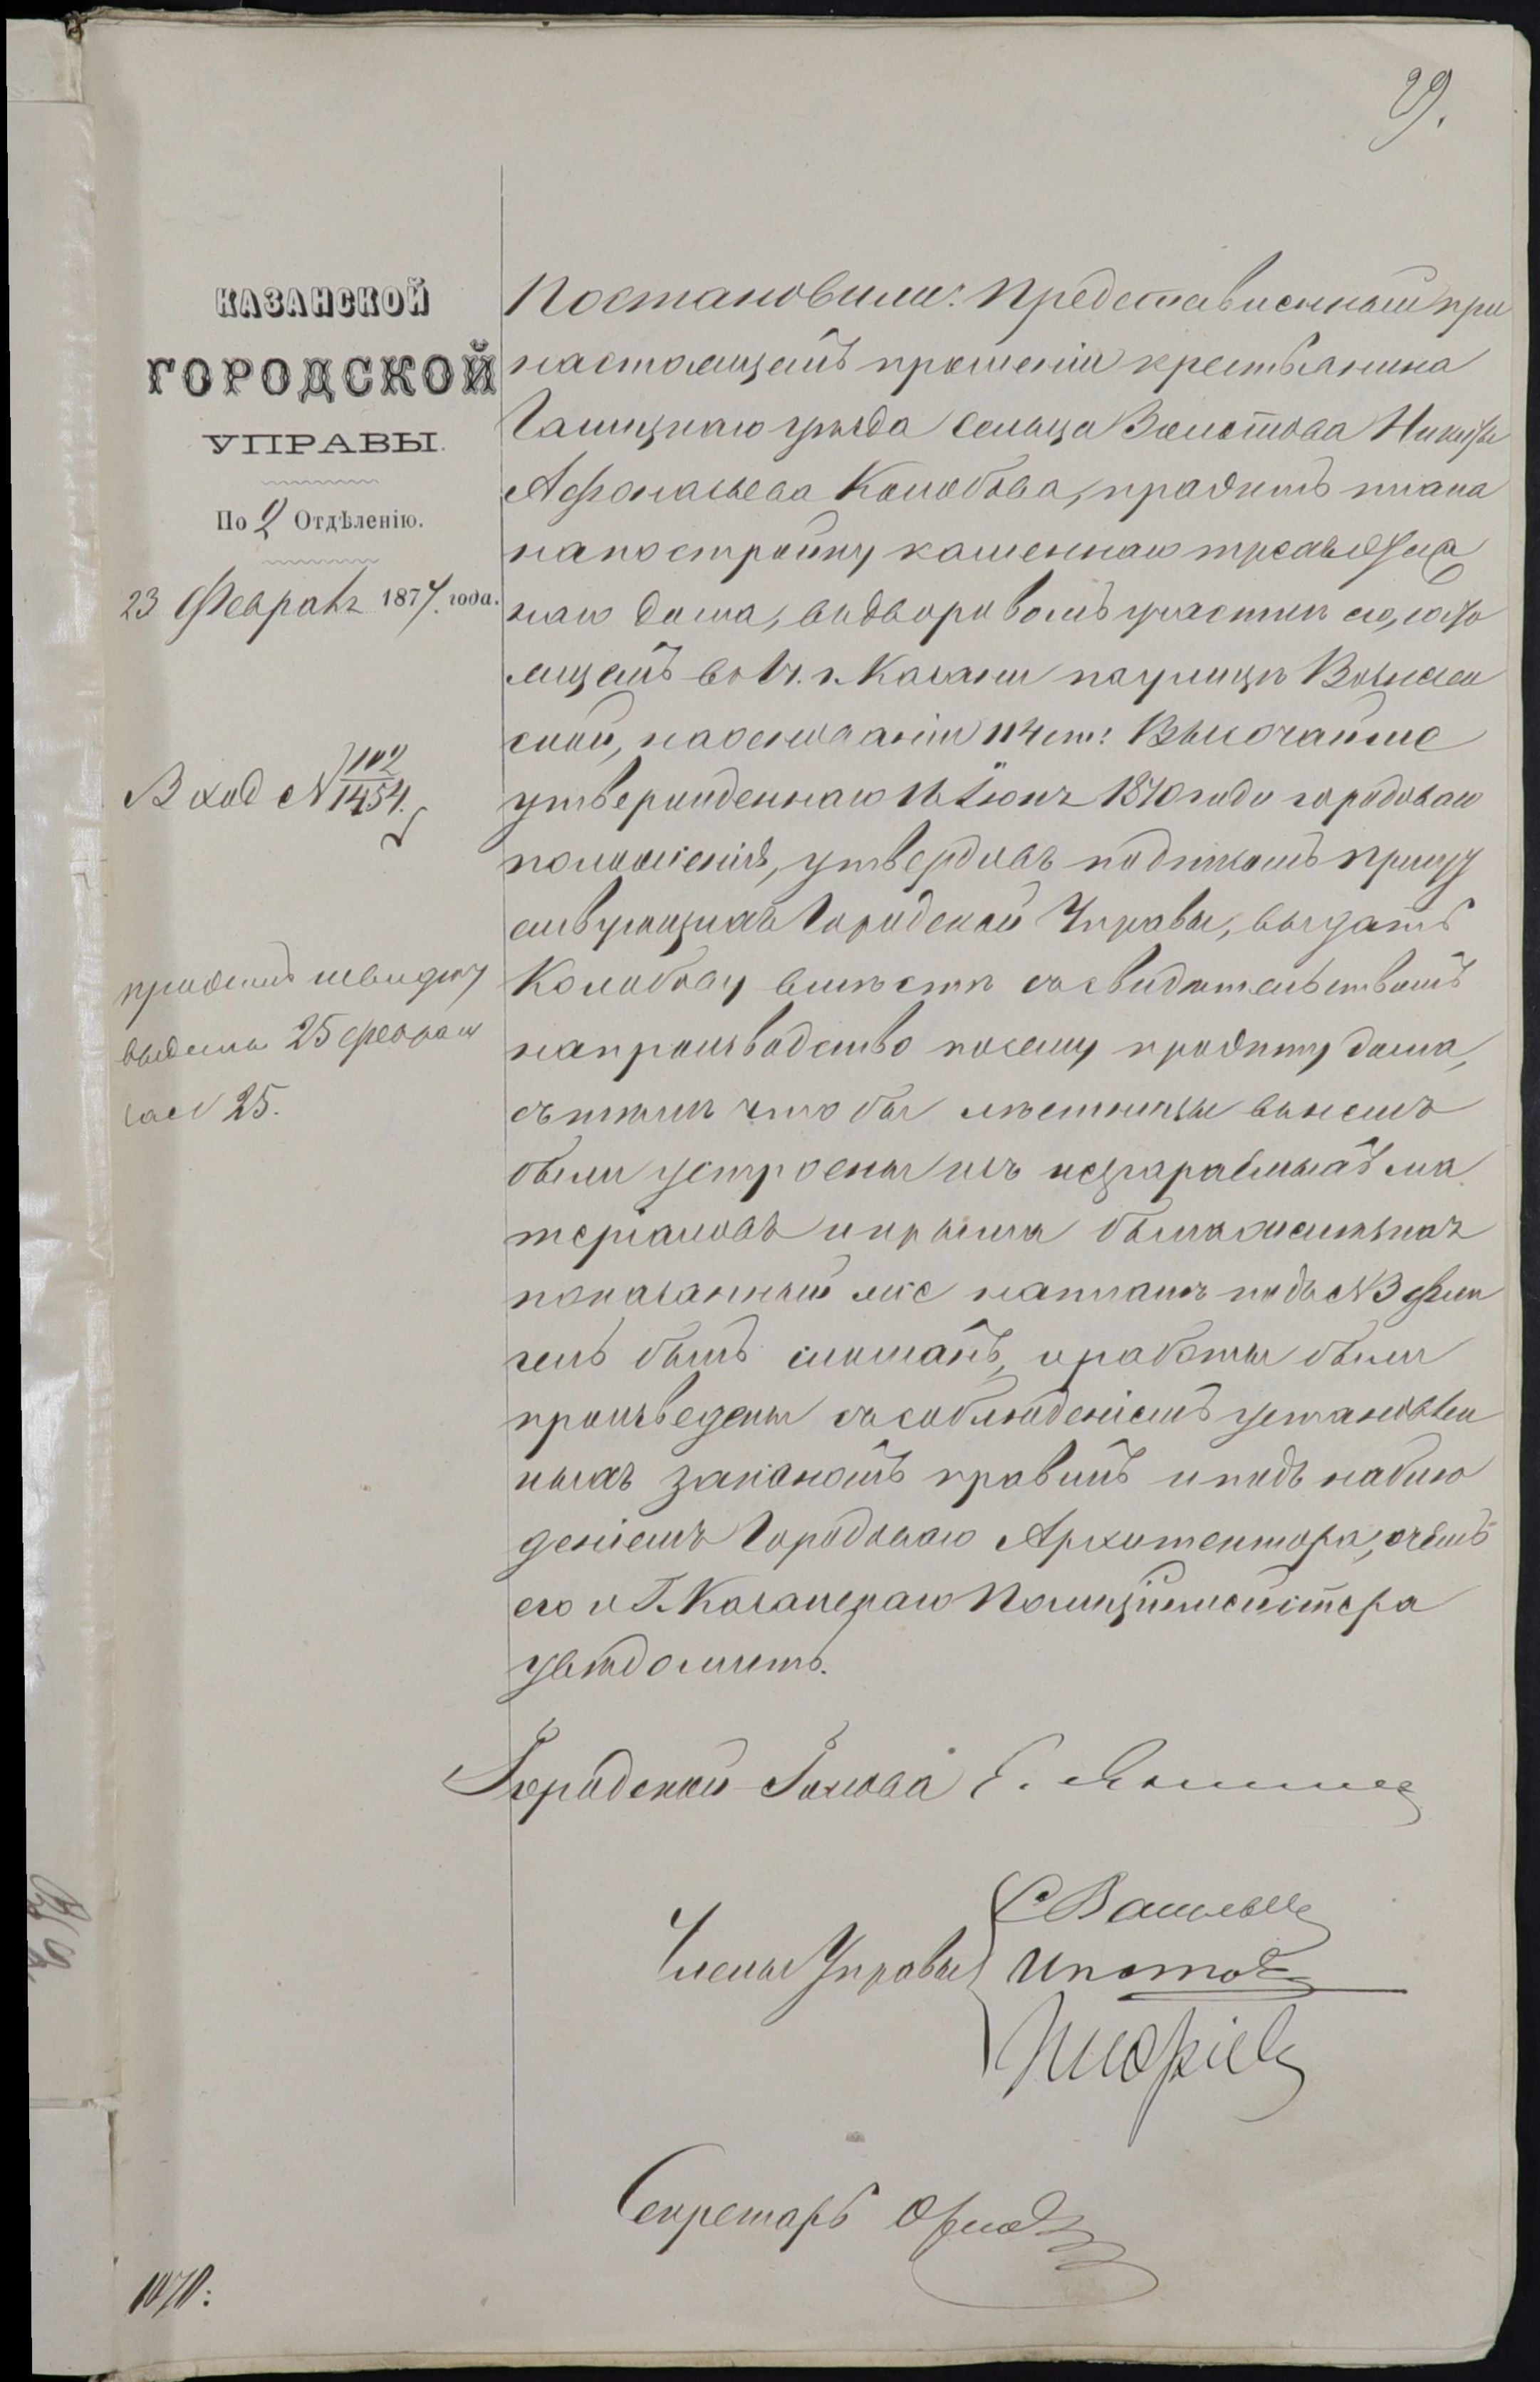 29.
КАЗАНСКОЙ
ГОРОДСКОЙ
УПРАВЫ.
По 2 Отдѣленію.
23 Февраля 1874 года.
Вход N 102
1454.
проектъ
выданы 25 февраля
25.
Постановили: Представленный при
настоящемъ прошеніи крестьянина
Галицкаго уѣзда сельца Никиты
Афонасьева Колобова, проэктъ плана
на постройку каменнаго трехъэтаж
наго дома, въ дворовомъ участкѣ его, состо
ящемъ во 1 ч. г. Казани по улицѣ Вознесен
ской, на основаніи 114 ст: Высочайше
утвержденнаго 16 Іюня 1870 года городоваго
положенія, утвердивъ подписомъ присут
ствующихъ Городской Управы, выдать
Колобову вмѣстѣ съ свидѣтельствомъ
на производство по сему проэкту дома,
съ тѣмъ что бы лѣстницы въ немъ
были устроены изъ несгараемыхъ ма
теріаловъ и крыша была желѣзная
показанный же на планѣ подъ N 3 фли
гель былъ сломанъ, и работы были
произведены съ соблюденіемъ установлен
ныхъ закономъ правилъ и подъ наблю
деніемъ Городоваго Архитектора, о чемъ
его и Г. Казанскаго Полицiймейстера
увѣдомить.
Городской Голова Е.
Члены Управы
С Васильевъ
Ипатовъ
Секретарь
1070: